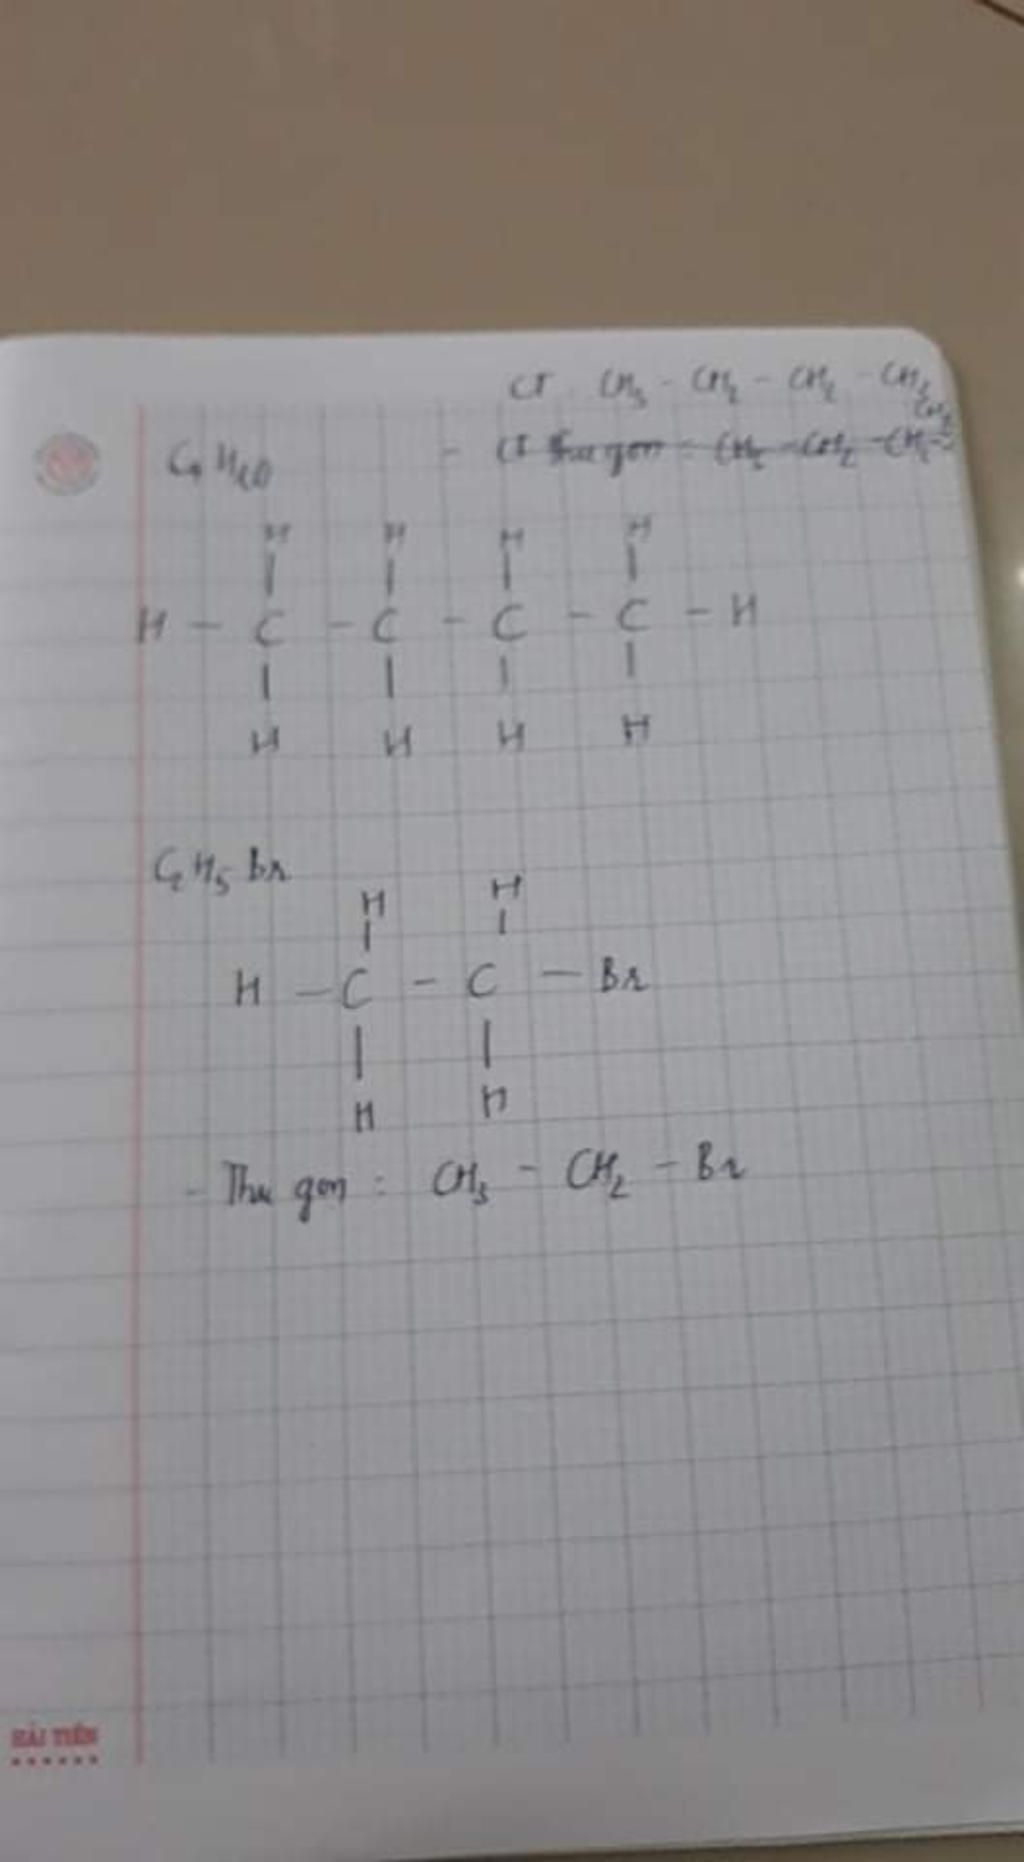 CT : CH3 - CH2 - CH2 - CH3
C4H10
- CT thu gọn : CH2 - CH2 - CH2 -
H H H H
H - C - C - C - C - H
H H H H
C2H5Br
H H
H - C - C - Br
H H
- Thu gọn : CH3 - CH2 - Br
HẢI TIẾN